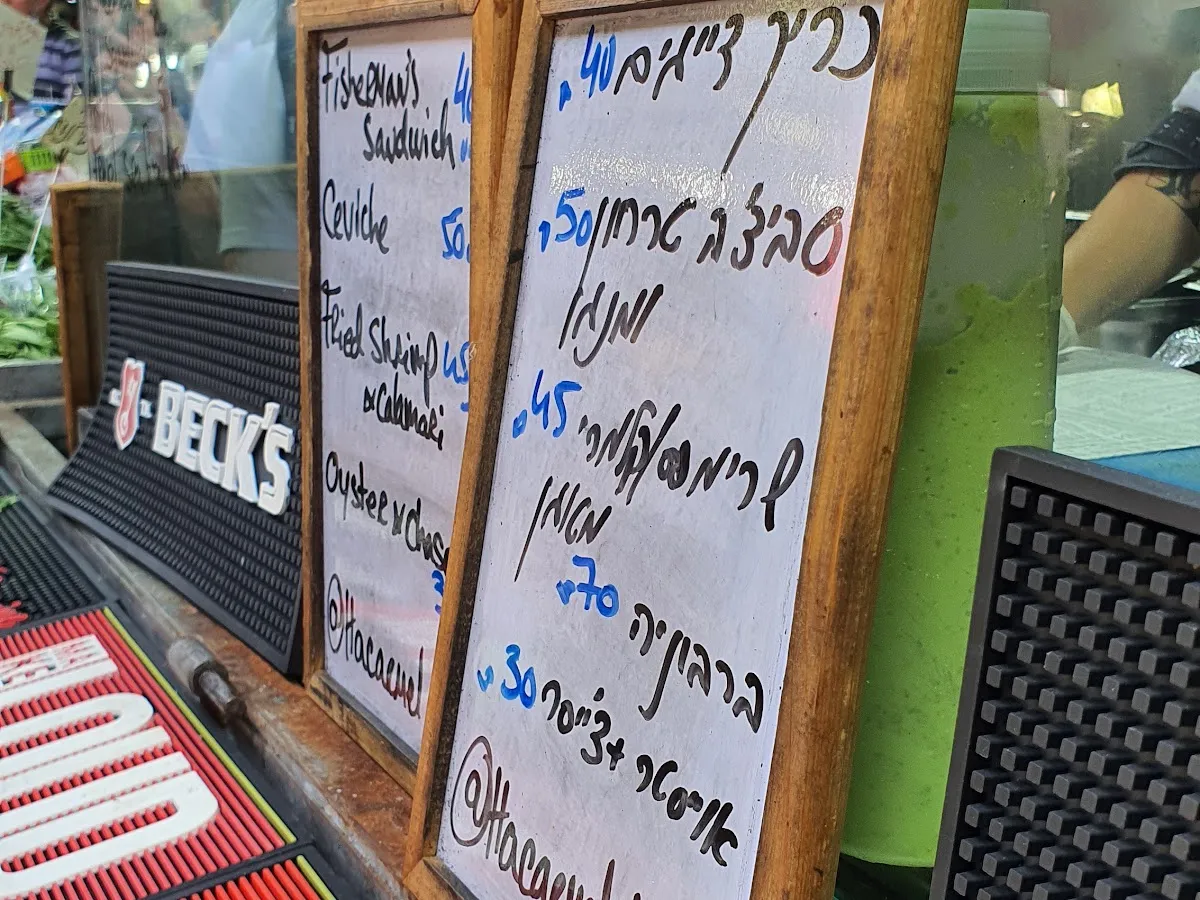 Fisherman's
Sandwich
Ceviche 50
Fried Shrimp 45
& Calamari
Oyster & chas
@Hacaemel
BECK'S
כריך דייגים 40
סביצ'ה טרחון 50
ומנגו
שרימפס/קלמרי 45
מטוגן
70
ברבוניה
אויסטר + צ'ייסר 30
@Hacaemel